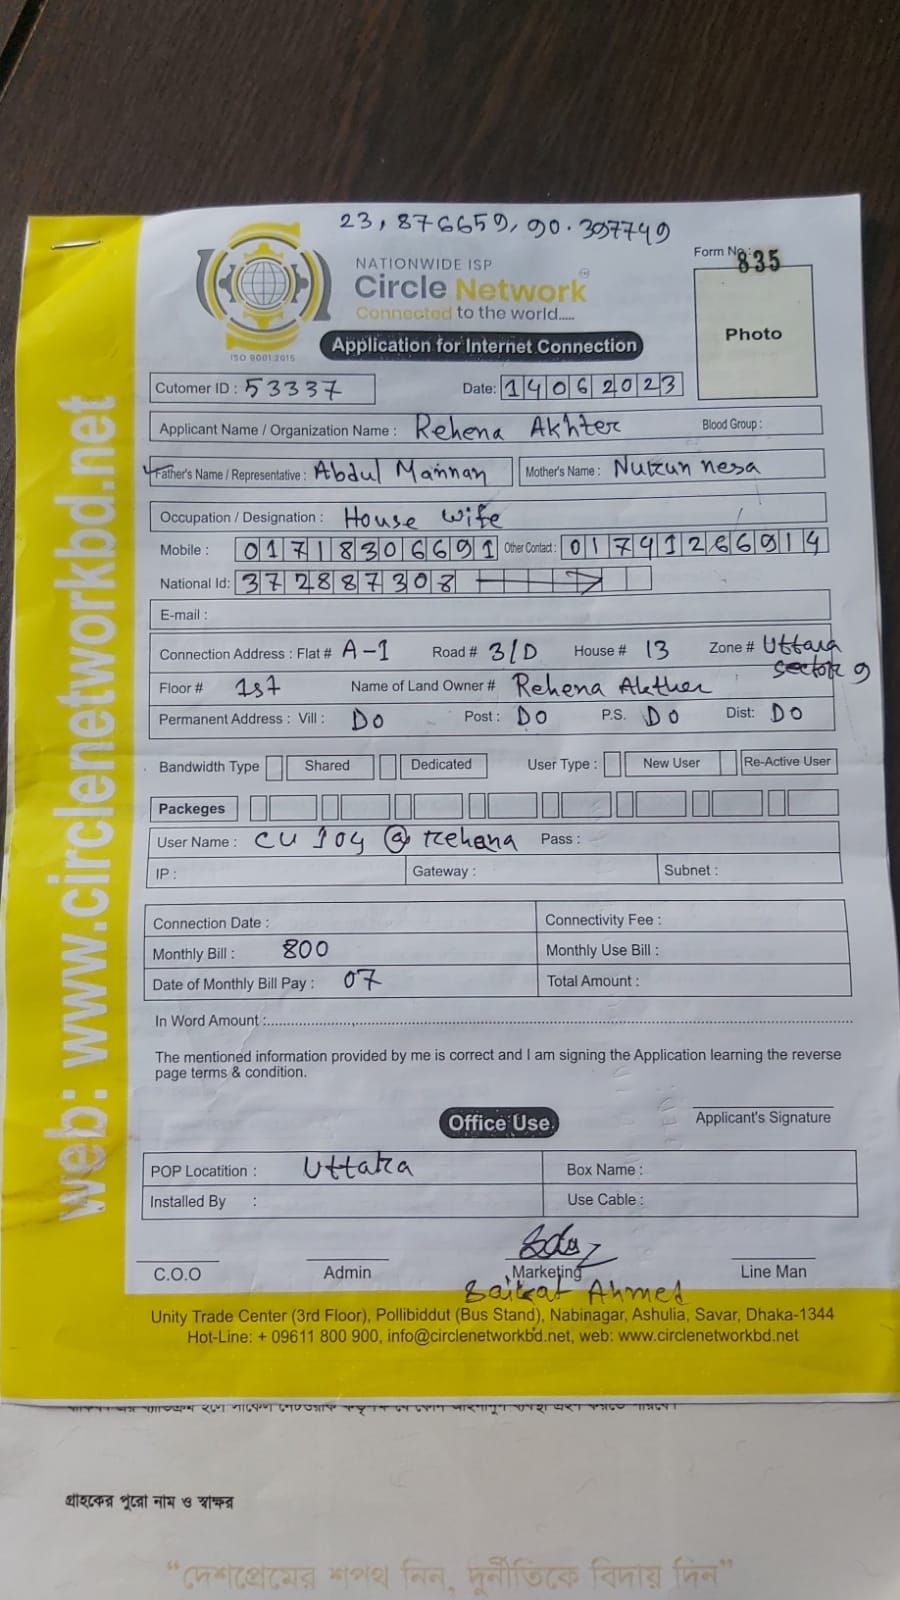 23, 876659, 90.397749
NATIONWIDE ISP
Circle Network
Connected to the world.....
ISO 9001:2015
Form No.: 835
Photo
Application for Internet Connection
Cutomer ID : 53337 Date: 14062023
Applicant Name / Organization Name : Rehena Akhter Blood Group :
Father's Name / Representative : Abdul Mannan Mother's Name : Nurun nesa
Occupation / Designation : House wife
Mobile : 01718306691 Other Contact : 01741266914
National Id: 372887308
E-mail :
Connection Address : Flat # A-1 Road # 3/D House # 13 Zone # Uttara
Sector 9
Floor # 1st Name of Land Owner # Rehena Akther
Permanent Address : Vill : Do Post : Do P.S. Do Dist: Do
Bandwidth Type Shared Dedicated User Type : New User Re-Active User
Packeges
User Name : CU 104 @ rehena Pass :
IP : Gateway : Subnet :
Connection Date : Connectivity Fee :
Monthly Bill : 800 Monthly Use Bill :
Date of Monthly Bill Pay : 07 Total Amount :
In Word Amount :
The mentioned information provided by me is correct and I am signing the Application learning the reverse
page terms & condition.
Applicant's Signature
Office Use
POP Locatition : Uttara Box Name :
Installed By : Use Cable :
C.O.O Admin Marketing Line Man
Saikat Ahmed
Unity Trade Center (3rd Floor), Pollibiddut (Bus Stand), Nabinagar, Ashulia, Savar, Dhaka-1344
Hot-Line: + 09611 800 900, info@circlenetworkbd.net, web: www.circlenetworkbd.net
web: www.circlenetworkbd.net
গ্রাহকের পুরো নাম ও স্বাক্ষর
“দেশপ্রেমের শপথ নিন, দুর্নীতিকে বিদায় দিন”